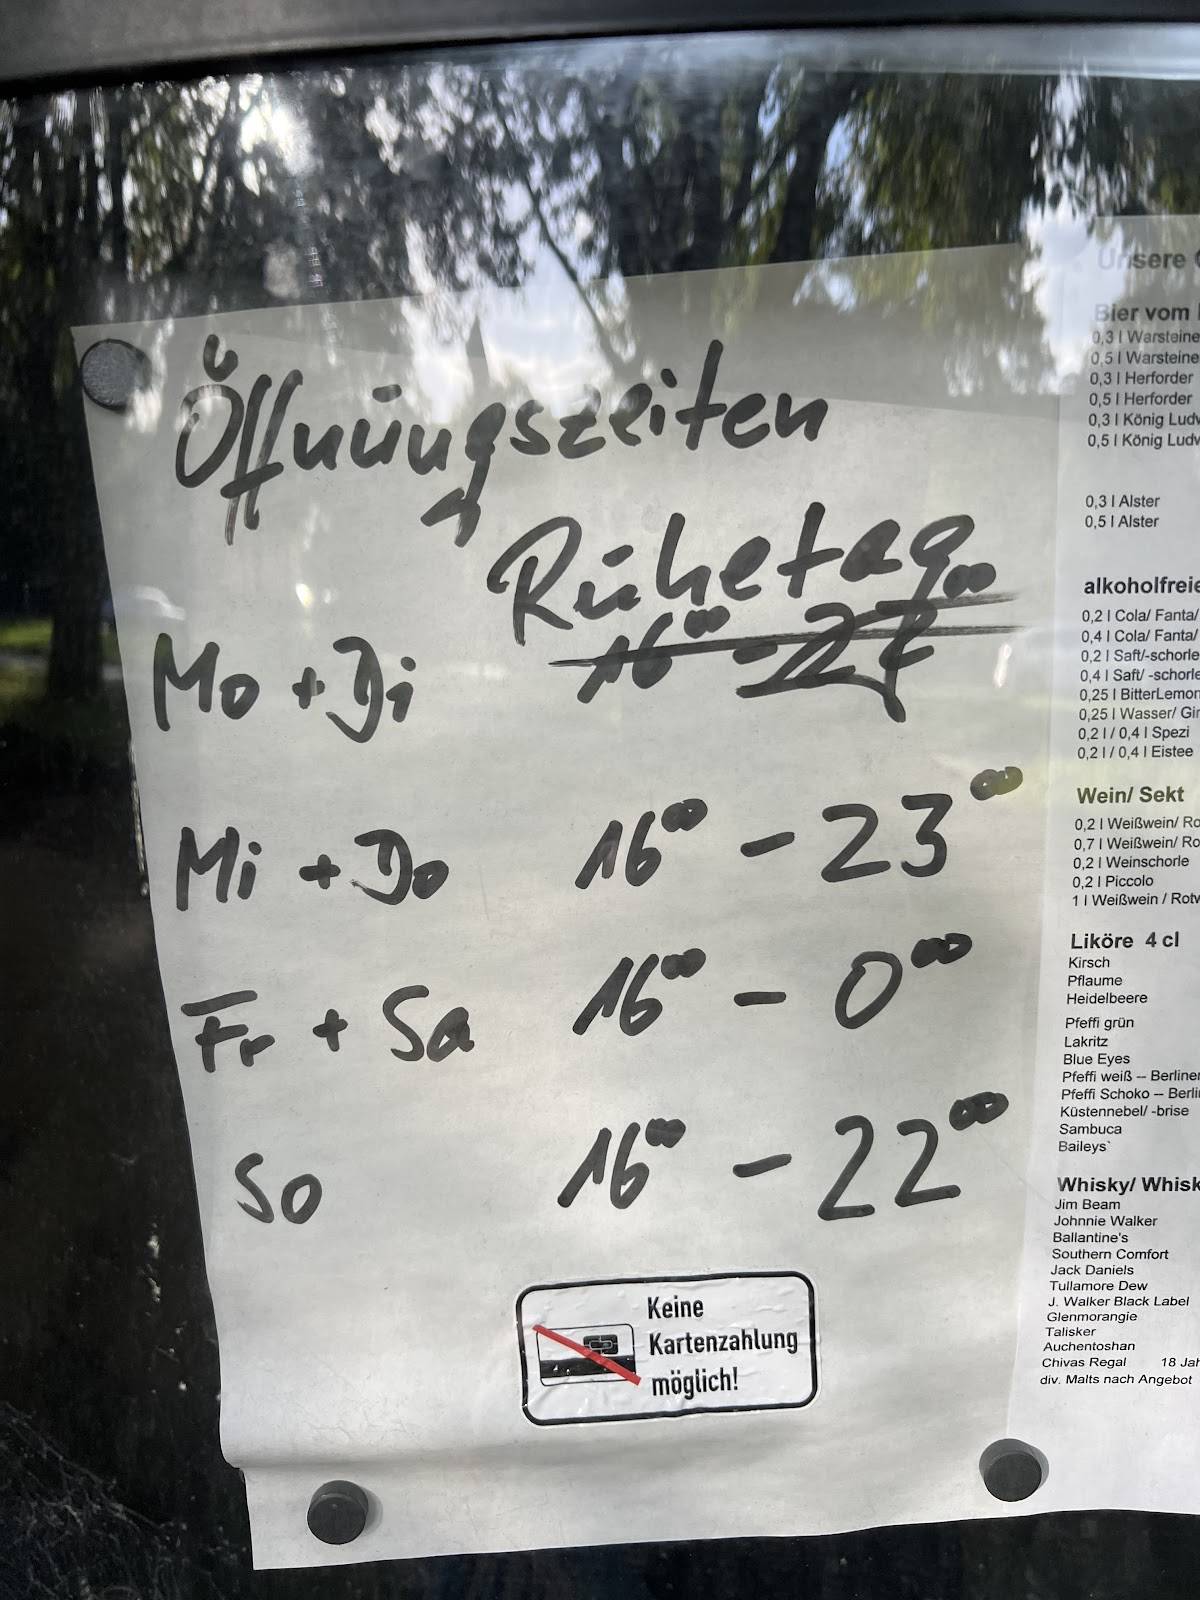 Öffnungszeiten
Ruhetag
Mo + Di 16⁰⁰ - 22⁰⁰
Mi + Do 16⁰⁰ - 23⁰⁰
Fr + Sa 16⁰⁰ - 0⁰⁰
So 16⁰⁰ - 22⁰⁰
Keine
Kartenzahlung
möglich!
Unsere
Bier vom
0,3 l Warsteine
0,5 l Warsteine
0,3 l Herforder
0,5 l Herforder
0,3 l König Ludw
0,5 l König Ludw
0,3 l Alster
0,5 l Alster
alkoholfreie
0,2 l Cola/ Fanta/
0,4 l Cola/ Fanta/
0,2 l Saft/-schorle
0,4 l Saft/ -schorle
0,25 l BitterLemon
0,25 l Wasser/ Gin
0,2 l / 0,4 l Spezi
0,2 l / 0,4 l Eistee
Wein/ Sekt
0,2 l Weißwein/ Ro
0,7 l Weißwein/ Ro
0,2 l Weinschorle
0,2 l Piccolo
1 l Weißwein / Rotw
Liköre 4 cl
Kirsch
Pflaume
Heidelbeere
Pfeffi grün
Lakritz
Blue Eyes
Pfeffi weiß -- Berliner
Pfeffi Schoko -- Berli
Küstennebel/ -brise
Sambuca
Baileys`
Whisky/ Whisk
Jim Beam
Johnnie Walker
Ballantine's
Southern Comfort
Jack Daniels
Tullamore Dew
J. Walker Black Label
Glenmorangie
Talisker
Auchentoshan
Chivas Regal 18 Jah
div. Malts nach Angebot